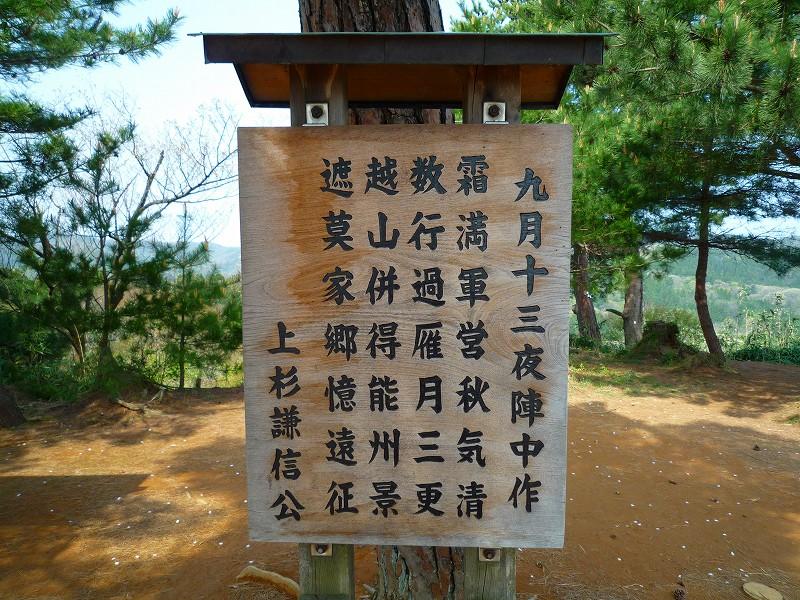 九月十三夜陣中作
霜満軍営秋気清
数行過雁月三更
越山併得能州景
遮莫家郷憶遠征
上杉謙信公